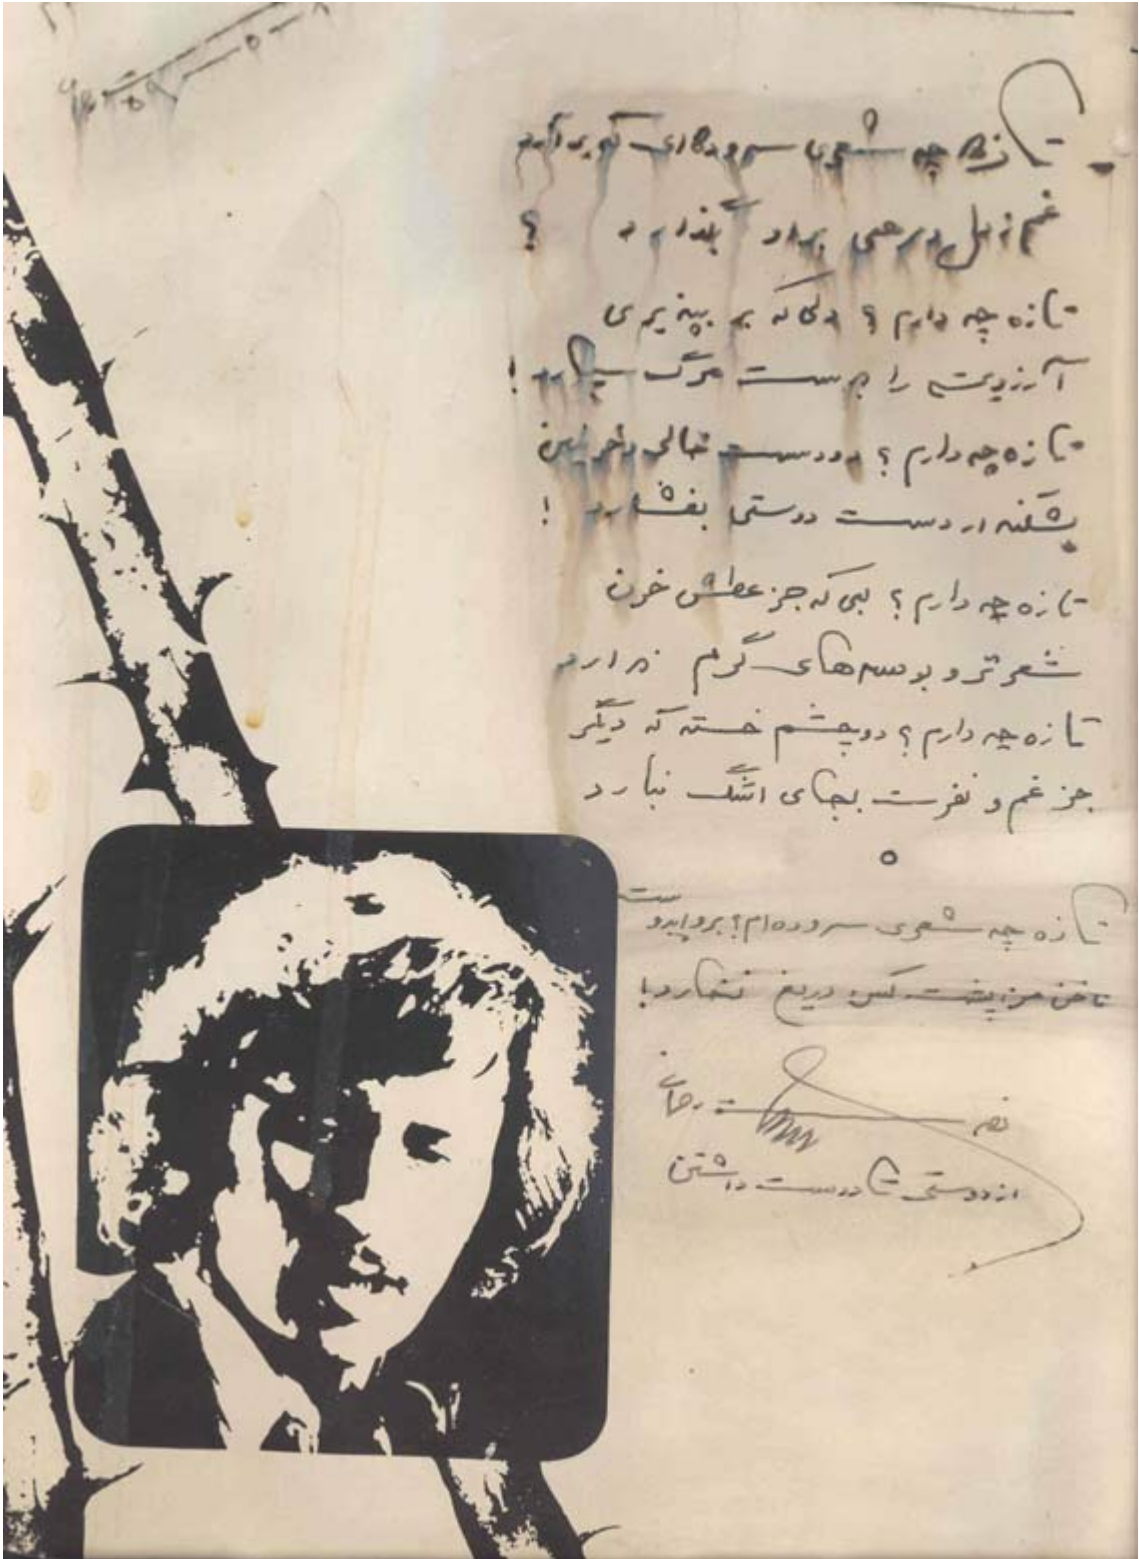 ـ تازه چه شعری سروده‌ای که برآرد
غم ز دل دردمی برد بگذارد ؟
تازه چه دارم ؟ دلی که بر پذیری
آرزویش را بدست مرگ سپارد !
تازه چه دارم ؟ دو دست خالی و خونین
بشکند ار دست دوستی بفشارد !
تازه چه دارم ؟ لبی که جز عطش خون
شعر تر و بوسه‌های گرم ندارد
تازه چه دارم ؟ دو چشم خسته که دیگر
جز غم و نفرت بجای اشک نبارد
تازه چه شعری سروده‌ام ؟ برو ایدوست
ناخن من پشت کس دریغ نخارد !
نصرت رحمانی
از دوستی تا دوست داشتن